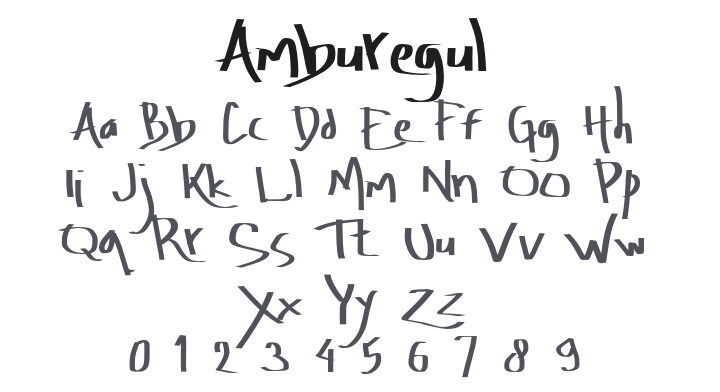 Amburegul
Aa Bb Cc Dd Ee Ff Gg Hh
Ii Jj Kk Ll Mm Nn Oo Pp
Qq Rr Ss Tt Uu Vv Ww
Xx Yy Zz
0 1 2 3 4 5 6 7 8 9